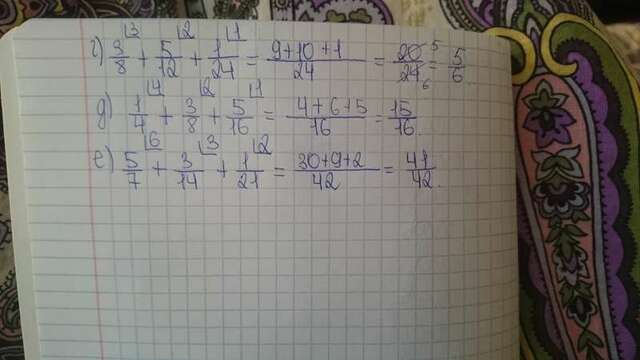 г) 3/8 ⌊3 + 5/12 ⌊2 + 1/24 ⌊1 = 9+10+1/24 = 20/24 5/6 = 5/6.
д) 1/4 ⌊4 + 3/8 ⌊2 + 5/16 ⌊1 = 4+6+5/16 = 15/16.
е) 5/7 ⌊6 + 3/14 ⌊3 + 1/21 ⌊2 = 30+9+2/42 = 41/42.